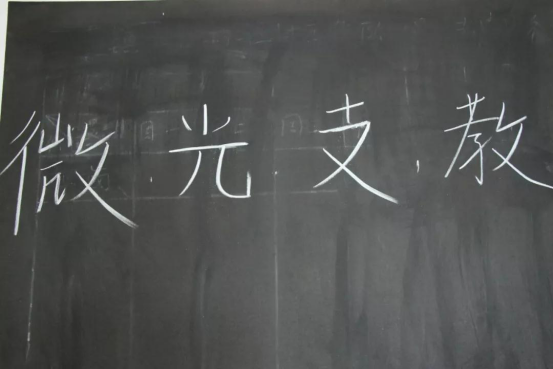 微.光.支.教